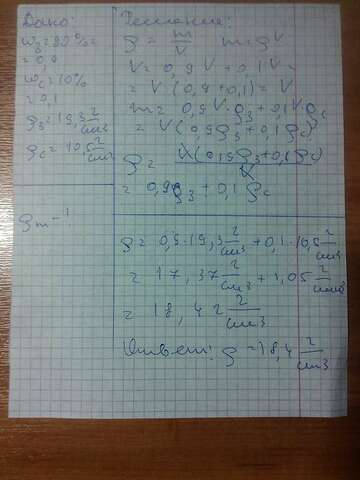 Дано:
ω₃ = 90% =
= 0,9
ωс = 10%
= 0,1
ρ₃ = 19,3 г/см3
ρс = 10,5 г/см3
ρт - ?
Решение:
ρ = m/V m = ρV
V = 0,9V + 0,1V =
= V(0,9 + 0,1) = V
m = 0,9V·ρ₃ + 0,1Vρс
= V(0,9ρ₃ + 0,1ρс)
ρ = V(0,9ρ₃ + 0,1ρс)/V
= 0,9ρ₃ + 0,1ρс
ρ = 0,9·19,3 г/см3 + 0,1·10,5 г/см3
= 17,37 г/см3 + 1,05 г/см3
= 18,42 г/см3
Ответ: ρ = 18,4 г/см3